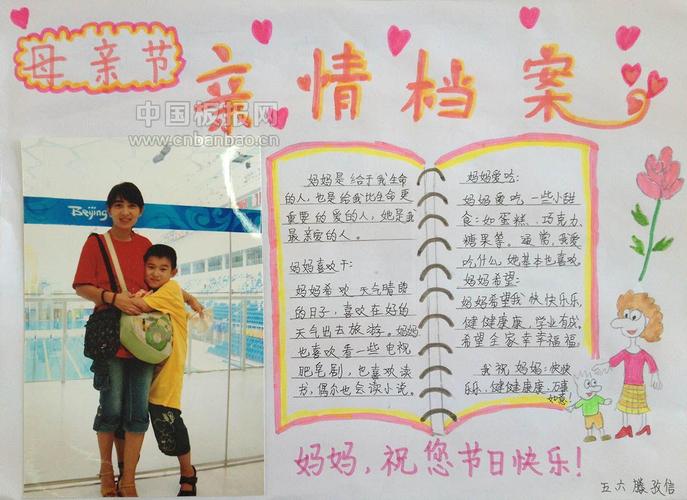 母亲节
亲情档案
中国板报网
www.cnbanbao.cn
Beijing
妈妈是给于我生命
的人,也是给我比生命更
重要的爱的人,她是我
最亲爱的人。
妈妈喜欢干:
妈妈希欢天气晴朗
的日子,喜欢在好的
天气出去旅游。妈妈
也喜欢看一些电视
肥皂剧,也喜欢读
书,偶尔也会读小说。
妈妈爱吃:
妈妈爱吃一些小甜
食:如蛋糕、巧克力、
糖果等。通常,我爱
吃什么她基本也喜欢。
妈妈希望:
妈妈希望我快快乐乐,
健健康康,学业有成。
希望全家幸幸福福。
我祝妈妈:快快
乐乐、健健康康、万事
如意!
妈妈,祝您节日快乐!
五六 滕孜信